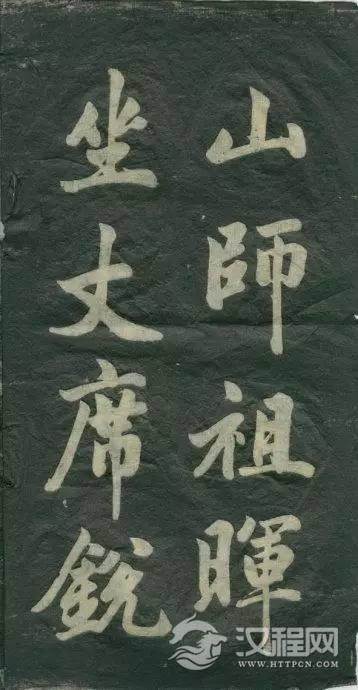 山師祖暉
坐丈席銳
汉程网
WWW.HTTPCN.COM